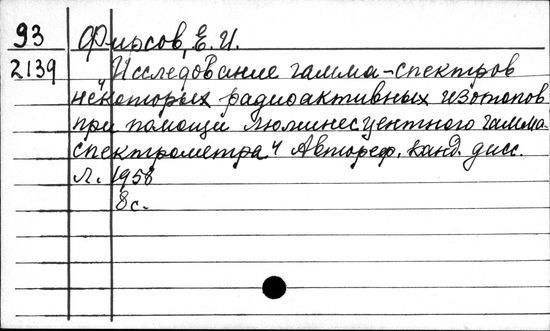 93 Фирсов, Е. И.
2139 "Исследование гамма-спектров
некоторых радиоактивных изотопов
при помощи люминесцентного гамма-
спектрометра" Автореф. канд. дисс.
Л. 1958
8с.